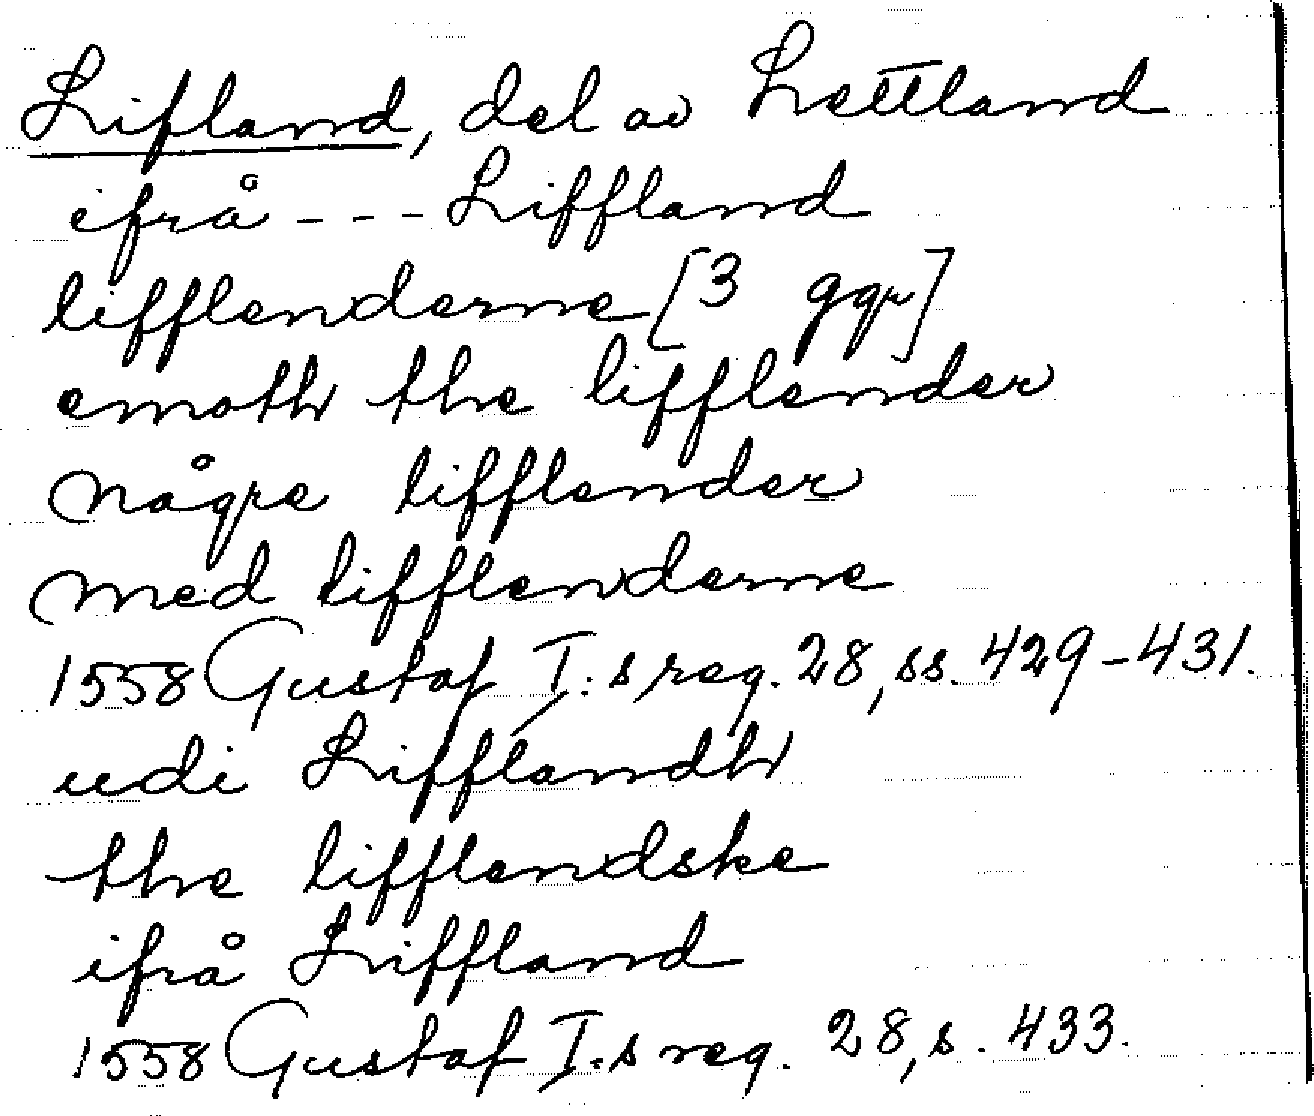 Lifland, del av Lettland
ifrå --- Liffland
lifflenderne [3 ggr]
emoth the lifflender
någre lifflender
med lifflenderne
1558 Gustaf I:s reg. 28, ss. 429-431.
udi Lifflandh
the lifflendske
ifrå Liffland
1558 Gustaf I:s reg. 28, s. 433.